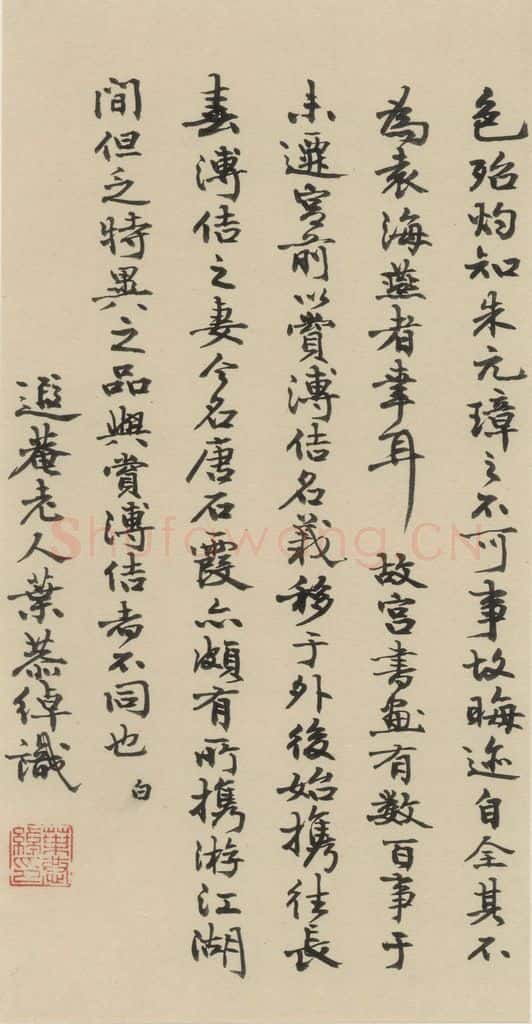 色殆灼知朱元璋之不可事故晦迹自全其不
為袁海燕者幸耳 故宮書畫有数百事于
未遷宮前以賞溥佶名義移于外後始携往長
春溥佶之妻今名唐石霞亦頗有所携游江湖
間但乏特異之品與賞溥佶者不同也 白
遐菴老人葉恭綽識
葉恭綽印
Shufawang.CN